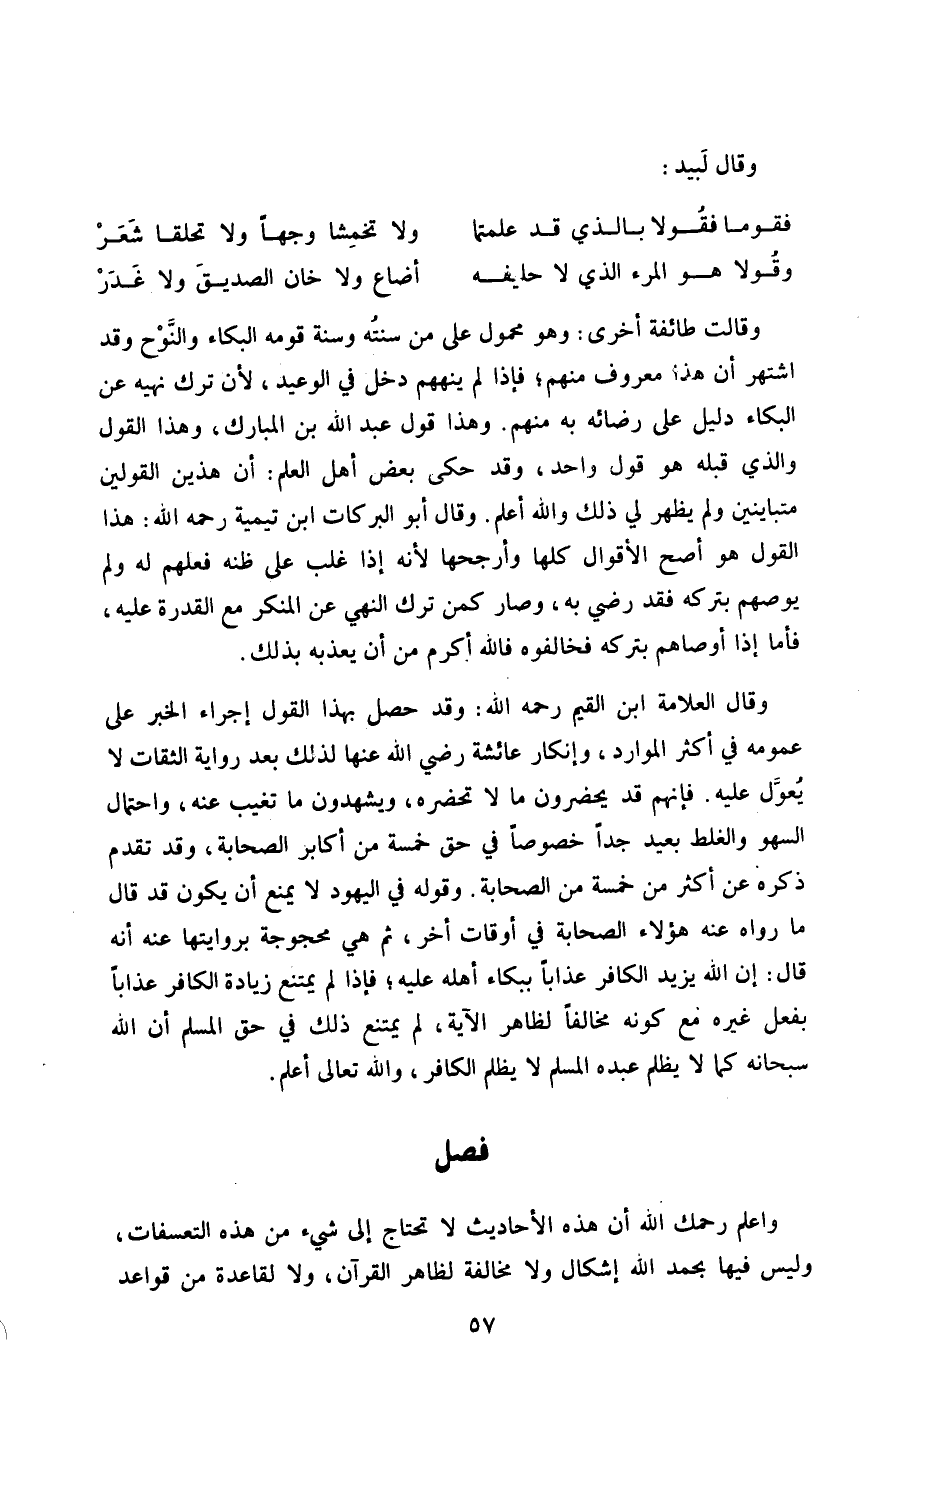 وقال لَبيد :
فقوما فقُولا بالذي قد علمتما ولا تخمِشا وجهاً ولا تحلقا شَعَرْ
وقُولا هو المرء الذي لا حليفه أضاع ولا خان الصديقَ ولا غَدَرْ
وقالت طائفة أخرى : وهو محمول على من سنتُه وسنة قومه البكاء والنَّوْح وقد
اشتهر أن هذا معروف منهم ؛ فإذا لم ينههم دخل في الوعيد ، لأن ترك نهيه عن
البكاء دليل على رضائه به منهم . وهذا قول عبد الله بن المبارك ، وهذا القول
والذي قبله هو قول واحد ، وقد حكى بعض أهل العلم : أن هذين القولين
متباينين ولم يظهر لي ذلك والله أعلم . وقال أبو البركات ابن تيمية رحمه الله : هذا
القول هو أصح الأقوال كلها وأرجحها لأنه إذا غلب على ظنه فعلهم له ولم
يوصهم بتركه فقد رضي به ، وصار كمن ترك النهي عن المنكر مع القدرة عليه ،
فأما إذا أوصاهم بتركه فخالفوه فالله أكرم من أن يعذبه بذلك .
وقال العلامة ابن القيم رحمه الله : وقد حصل بهذا القول إجراء الخبر على
عمومه في أكثر الموارد ، وإنكار عائشة رضي الله عنها لذلك بعد رواية الثقات لا
يُعوَّل عليه . فإنهم قد يحضرون ما لا تحضره ، ويشهدون ما تغيب عنه ، واحتمال
السهو والغلط بعيد جداً خصوصاً في حق خمسة من أكابر الصحابة ، وقد تقدم
ذكره عن أكثر من خمسة من الصحابة . وقوله في اليهود لا يمنع أن يكون قد قال
ما رواه عنه هؤلاء الصحابة في أوقات أخر ، ثم هي محجوجة بروايتها عنه أنه
قال : إن الله يزيد الكافر عذاباً ببكاء أهله عليه ؛ فإذا لم يمتنع زيادة الكافر عذاباً
بفعل غيره مع كونه مخالفاً لظاهر الآية ، لم يمتنع ذلك في حق المسلم أن الله
سبحانه كما لا يظلم عبده المسلم لا يظلم الكافر ، والله تعالى أعلم .
فصل
واعلم رحمك الله أن هذه الأحاديث لا تحتاج إلى شيء من هذه التعسفات ،
وليس فيها بحمد الله إشكال ولا مخالفة لظاهر القرآن ، ولا لقاعدة من قواعد
٥٧